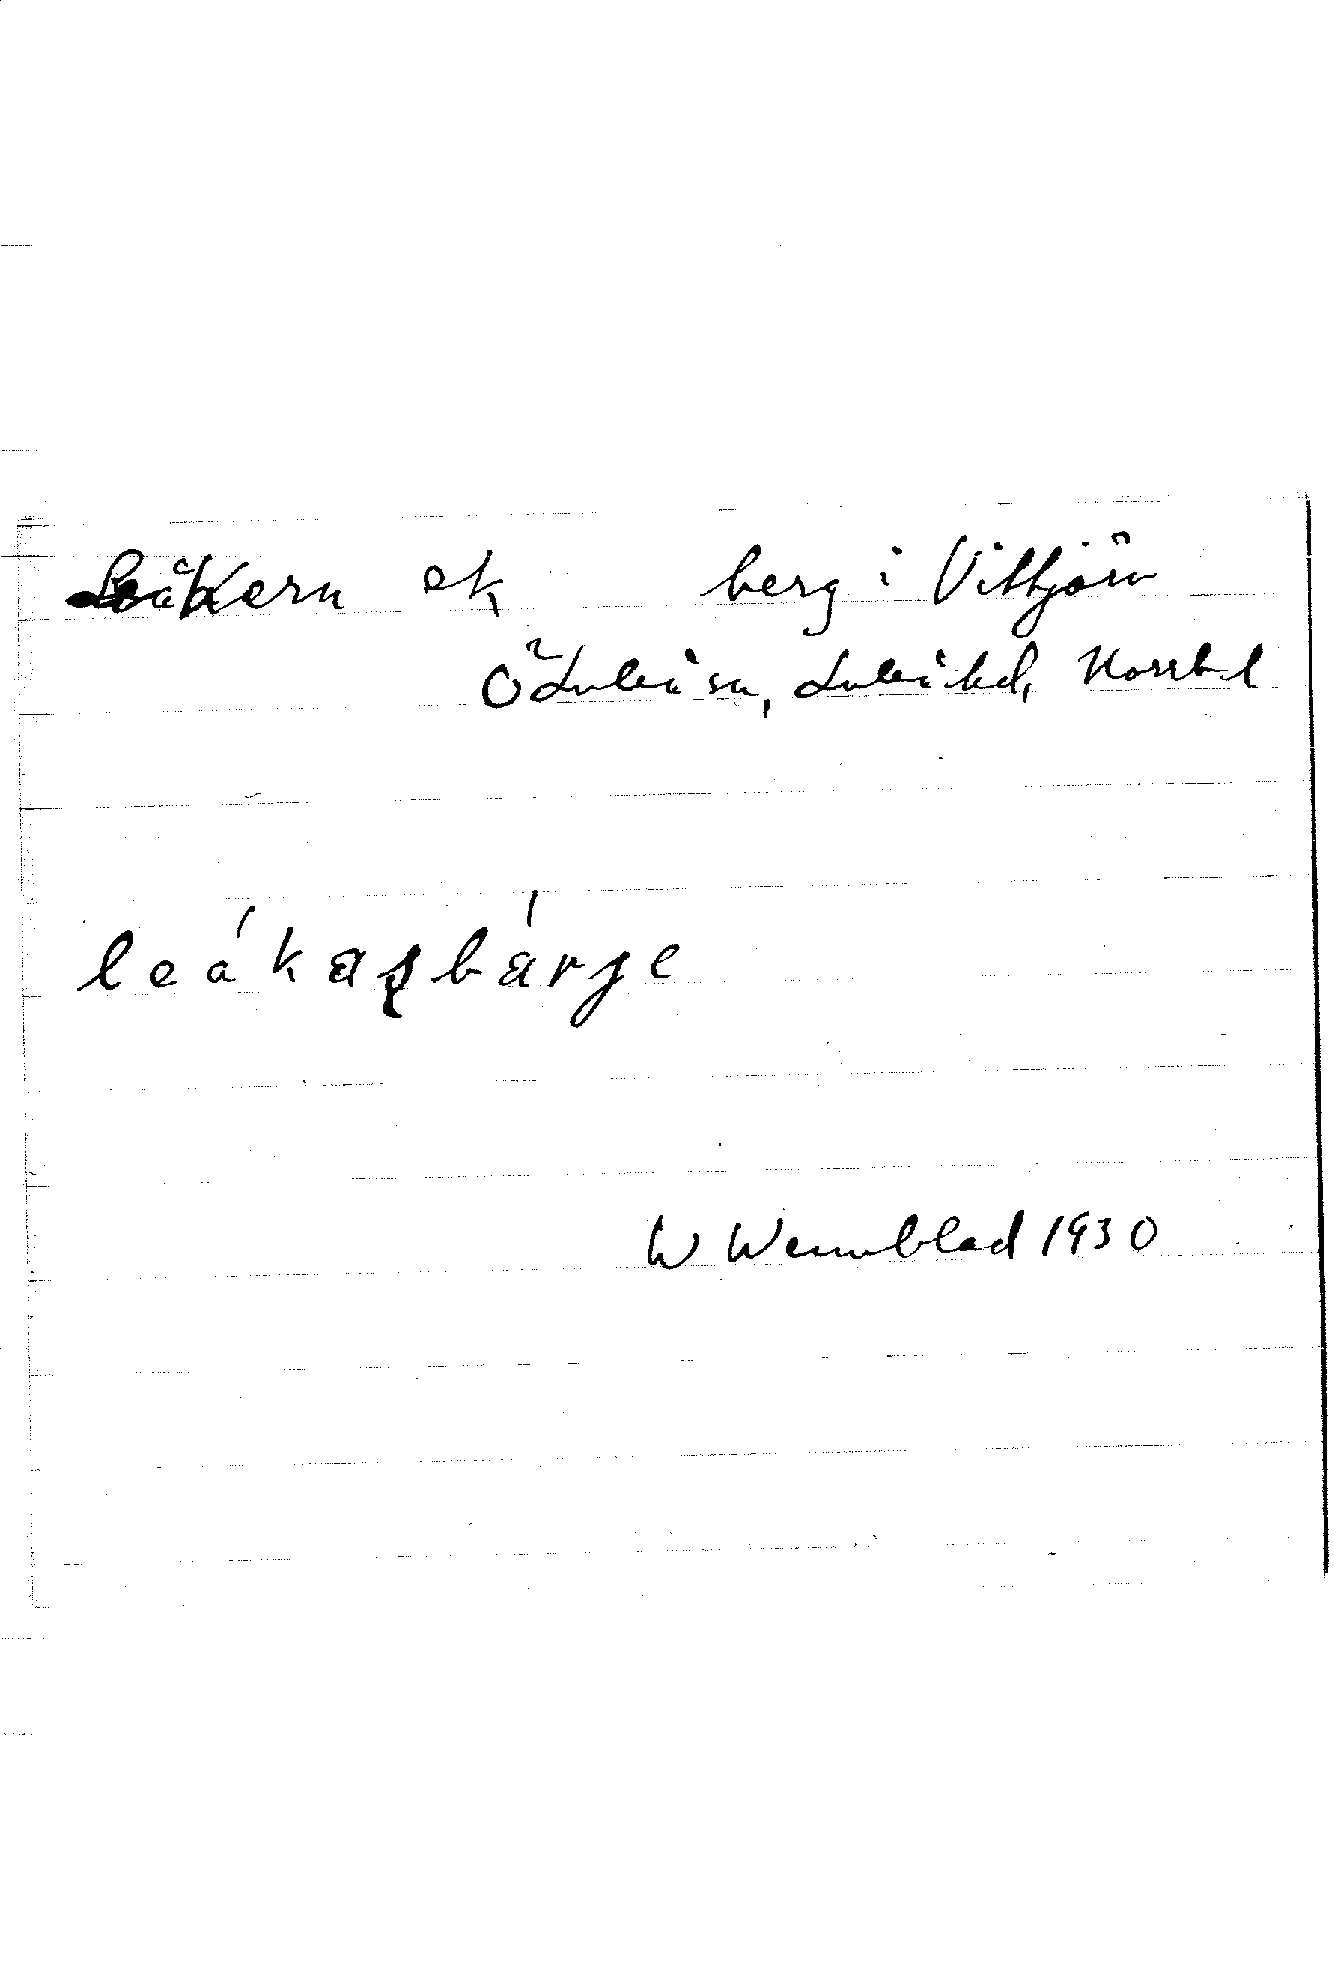 Leåkern ek berg i Vittjärn
ÖLuleå sn, Luleå hd, Norrb l
leákaɽbárje
W Wennblad 1930